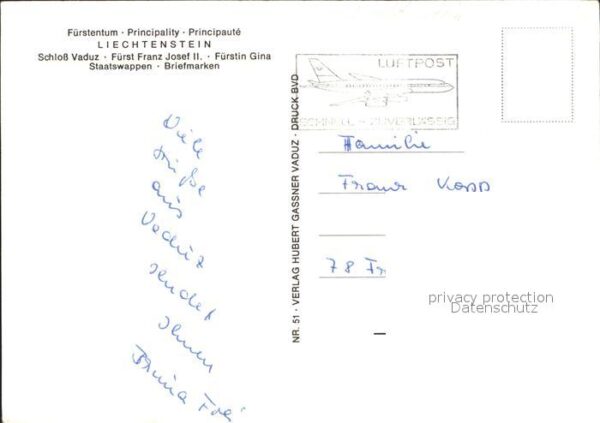 Fürstentum · Principality · Principauté
LIECHTENSTEIN
Schloß Vaduz · Fürst Franz Josef II. · Fürstin Gina
Staatswappen · Briefmarken
Viele
Grüße
aus
Vaduz
sendet
Ihnen
Frei
NR. 51 · VERLAG HUBERT GASSNER VADUZ · DRUCK BVD
LUFTPOST
SCHNELL - ZUVERLÄSSIG
Familie
Franz Kopp
78 Fr
privacy protection
Datenschutz